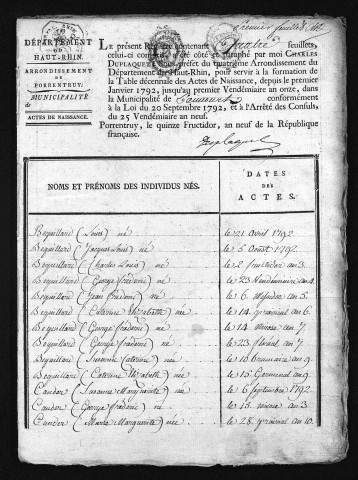 Premier feuillet
DÉPARTEMENT
DU
HAUT-RHIN.
ARRONDISSEMENT
DE
PORRENTRUY.
MUNICIPALITÉ
de
ACTES DE NAISSANCE.
Le présent Registre contenant Quatre feuillets,
celui-ci compris, a été coté et paraphé par moi CHARLES
DUPLAQUET, Sous-préfet du quatrième Arrondissement du
Département du Haut-Rhin, pour servir à la formation de
la Table décennale des Actes de Naissance, depuis le premier
Janvier 1792, jusqu'au premier Vendémiaire an onze, dans
la Municipalité de conformément
à la Loi du 20 Septembre 1792, et à l'Arrêté des Consuls,
du 25 Vendémiaire an neuf.
Porrentruy, le quinze Fructidor, an neuf de la République
française.
Duplaquet
NOMS ET PRÉNOMS DES INDIVIDUS NÉS.
DATES
DES
ACTES.
Bequillard (Louis) né le 21 Avril 1792
Bequillard (Jacques Louis) né le 5 Aoust 1792
Bequillard (Charles Louis) né le 2 fructidor an 3
Bequillard (George frédéric) né le 23 Vendémiaire an 4
Bequillard (Jean frédéric) né le 6 Messidor an 5
Bequillard (Caterine Elisabeth) née le 14 germinal an 6
Bequillard (George frédéric) né le 14 nivose an 7
Bequillard (George frédéric) né le 23 floreal an 7
Bequillard (Susanne Caterine) née le 16 brumaire an 9
Bequillard (Caterine Elisabeth) née le 15 Germinal an 9
Cuudor (Susanne Marguerite) née le 6 septembre 1792
Cuudor (George frédéric) né le 15 nivose an 3
Cuudor (Marie Marguerite) née le 28 germinal an 10